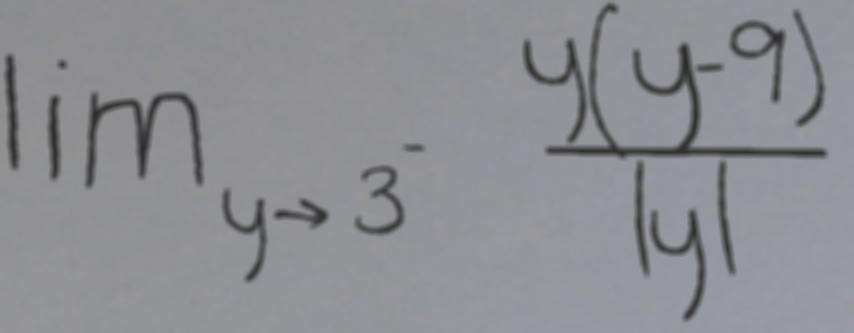 lim y→3⁻ y(y-9)/|y|